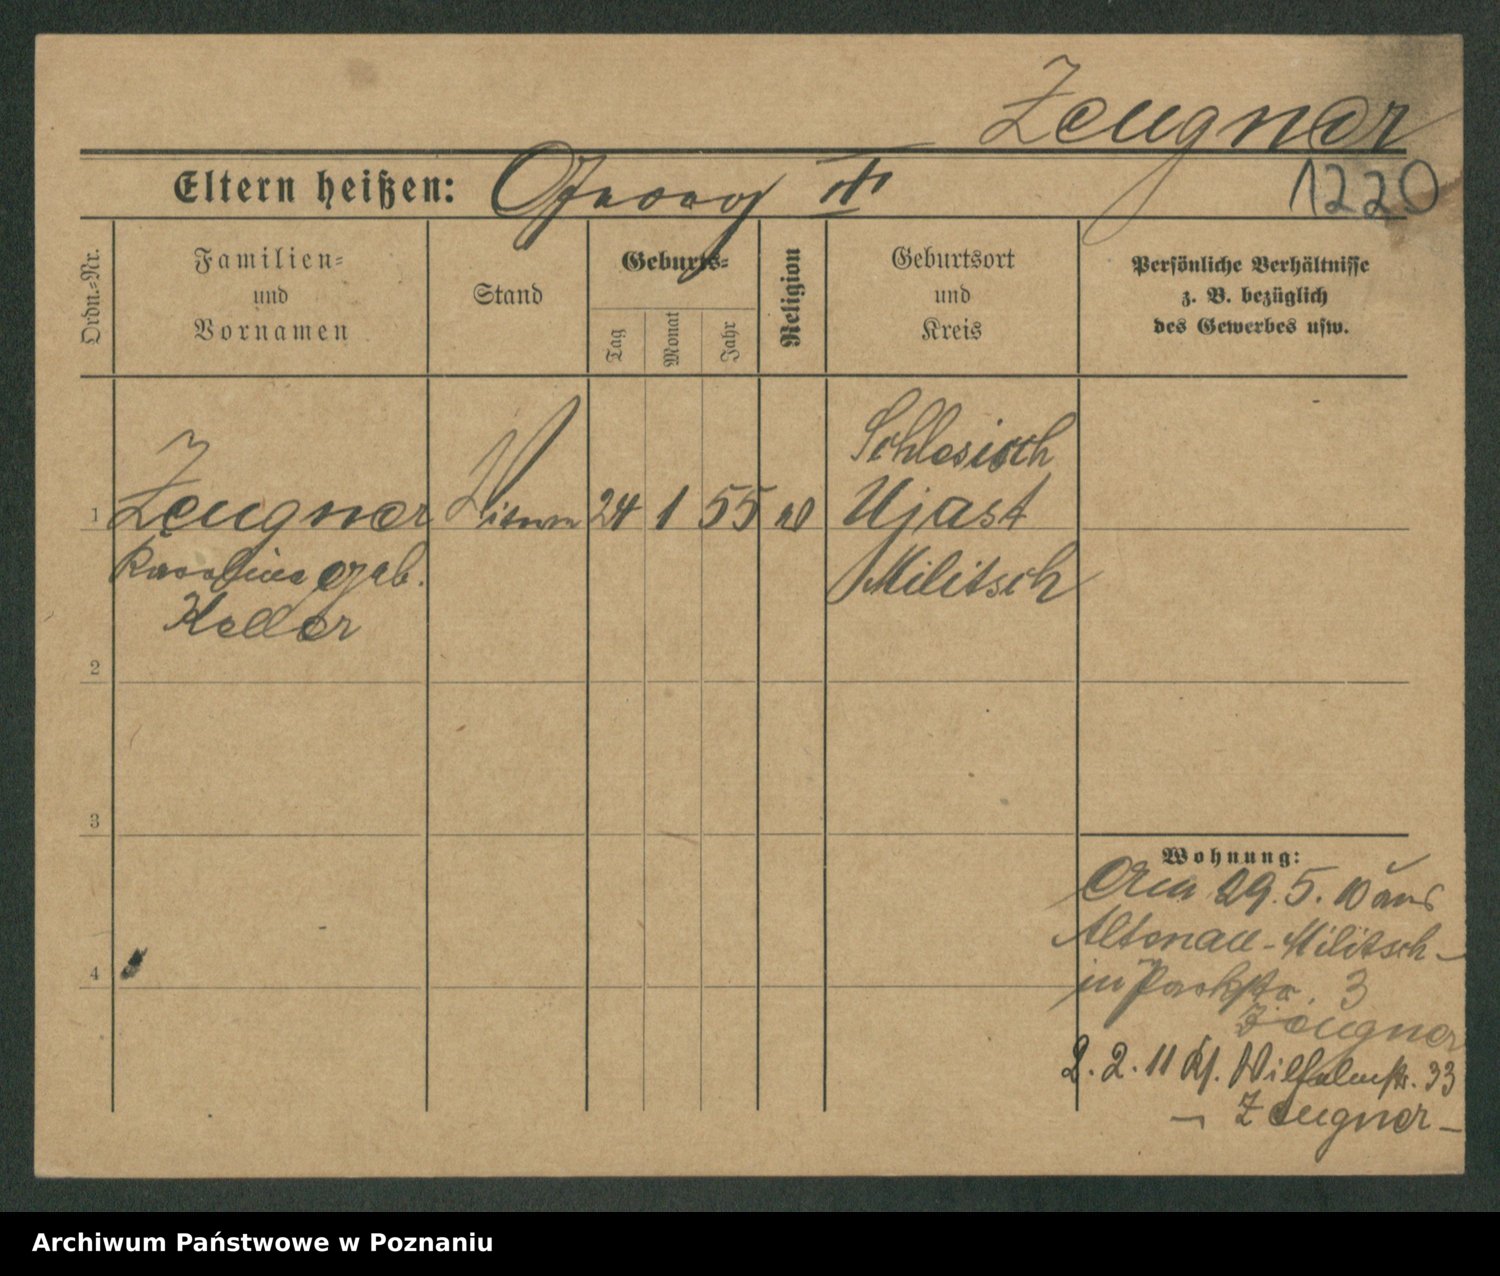 Zeugner
Eltern heißen: Georg
1220
Ordn.-Nr.
Familien-
und
Vornamen
Stand
Geburts-
Tag
Monat
Jahr
Religion
Geburtsort
und
Kreis
Persönliche Verhältnisse
z. B. bezüglich
des Gewerbes usw.
Schlesisch
1 Zeugner Witwe 24 1 55 Ujast
Karoline geb. Militsch
Keller
2
3
Wohnung:
29.5.10 aus
Altenau - Militsch -
4
in Parkstr. 3
Zeugner
2.2.11 Kl. Wilhelmstr. 33
- Zeugner -
Archiwum Państwowe w Poznaniu